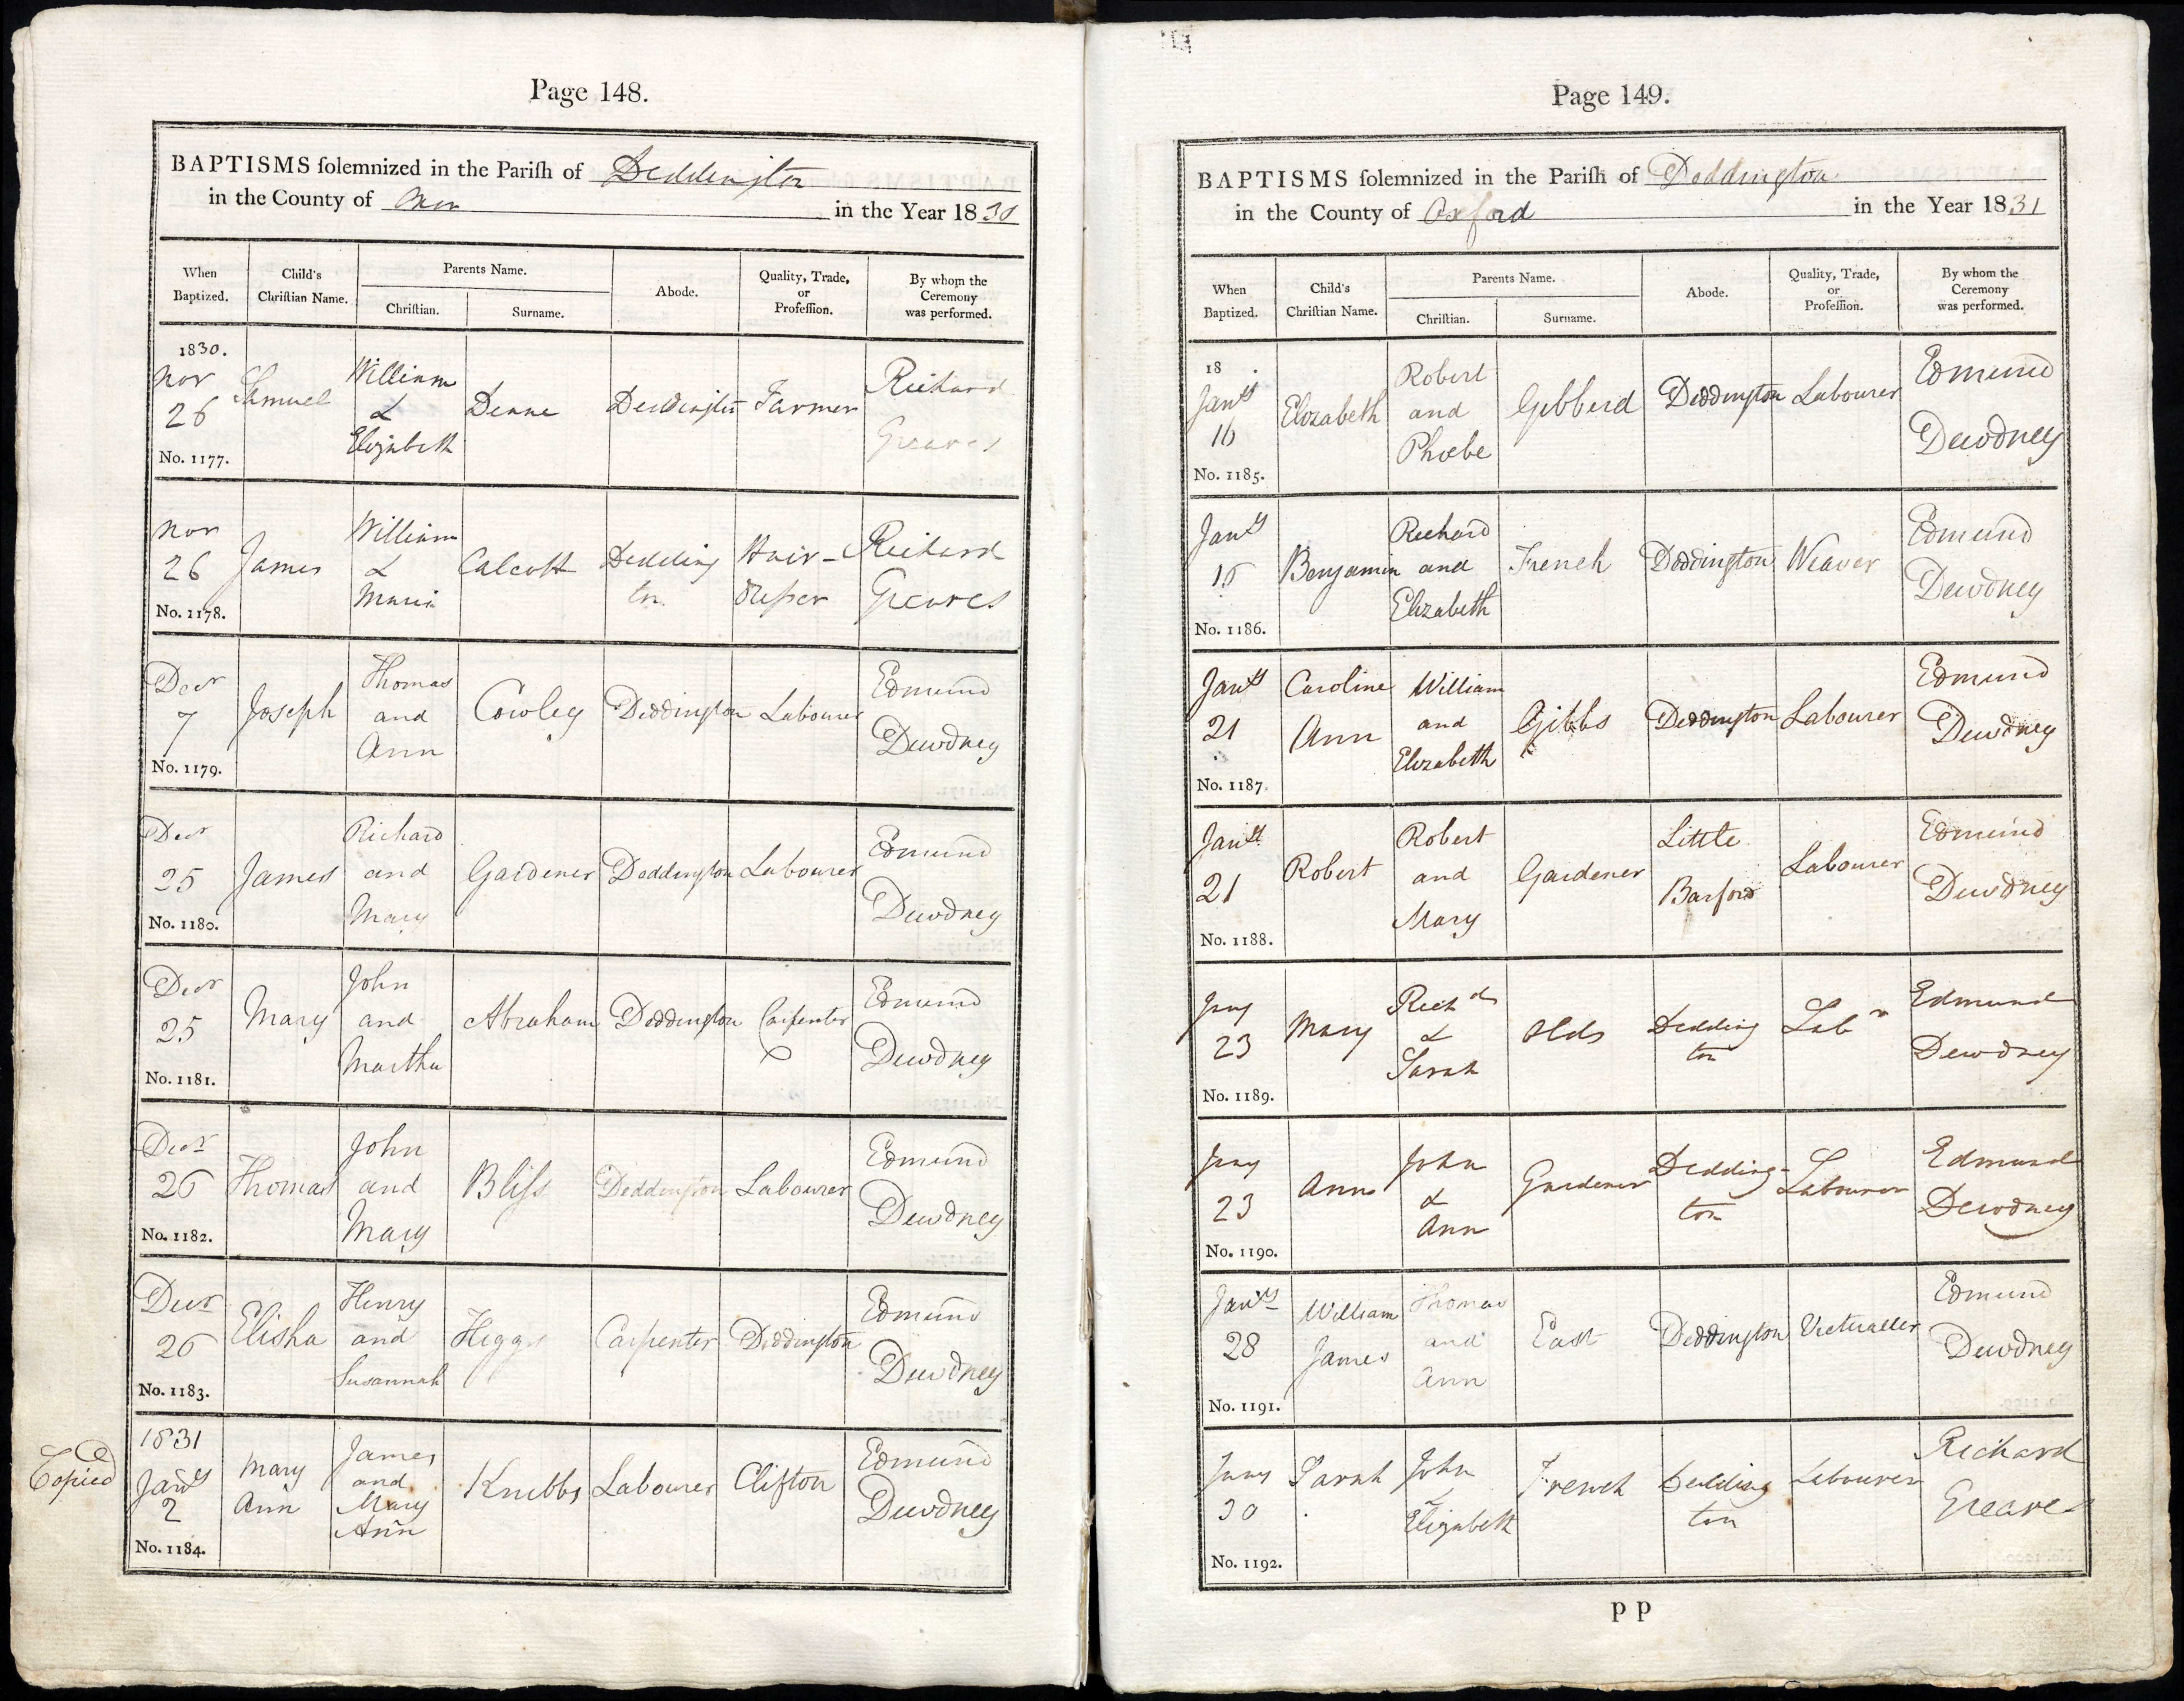 Page 148.
BAPTISMS ſolemnized in the Pariſh of Deddington
in the County of Oxon in the Year 1830
When Baptized.
Child's Chriſtian Name.
Parents Name.
Chriſtian.
Surname.
Abode.
Quality, Trade, or Profeſſion.
By whom the Ceremony was performed.
1830.
Nov 26 Samuel William & Elizabeth Denne Deddington Farmer Richard Greaves
No. 1177.
Nov 26 James William & Maria Calcott Dedding ton Hair- dreſser Richard Greaves
No. 1178.
Decr 7 Joseph Thomas and Ann Cowley Deddington Labourer Edmund Dewdney
No. 1179.
Decr 25 James Richard and Mary Gardener Deddington Labourer Edmund Dewdney
No. 1180.
Decr 25 Mary John and Martha Abraham Deddington Carpenter Edmund Dewdney
No. 1181.
Decr 26 Thomas John and Mary Bliſs Deddington Labourer Edmund Dewdney
No. 1182.
Decr 26 Elisha Henry and Susannah Higgs Carpenter Deddington Edmund Dewdney
No. 1183.
Copied
1831
Jany 2 Mary Ann James and Mary Ann Knibbs Labourer Clifton Edmund Dewdney
No. 1184.
Page 149.
BAPTISMS ſolemnized in the Pariſh of Deddington
in the County of Oxford in the Year 1831
When Baptized.
Child's Chriſtian Name.
Parents Name.
Chriſtian.
Surname.
Abode.
Quality, Trade, or Profeſſion.
By whom the Ceremony was performed.
18
Jany 16 Elizabeth Robert and Phoebe Gibberd Deddington Labourer Edmund Dewdney
No. 1185.
Jany 16 Benjamin Richard and Elizabeth French Deddington Weaver Edmund Dewdney
No. 1186.
Jany 21 Caroline Ann William and Elizabeth Gibbs Deddington Labourer Edmund Dewdney
No. 1187.
Jany 21 Robert Robert and Mary Gardener Little Barford Labourer Edmund Dewdney
No. 1188.
Jany 23 Mary Richd & Sarah Olds Dedding ton Labr Edmund Dewdney
No. 1189.
Jany 23 Ann John & Ann Gardener Dedding- ton Labourer Edmund Dewdney
No. 1190.
Jany 28 William James Thomas and Ann East Deddington Victualler Edmund Dewdney
No. 1191.
Jany 30 Sarah John & Elizabeth French Dedding ton Labourer Richard Greaves
No. 1192.
P P